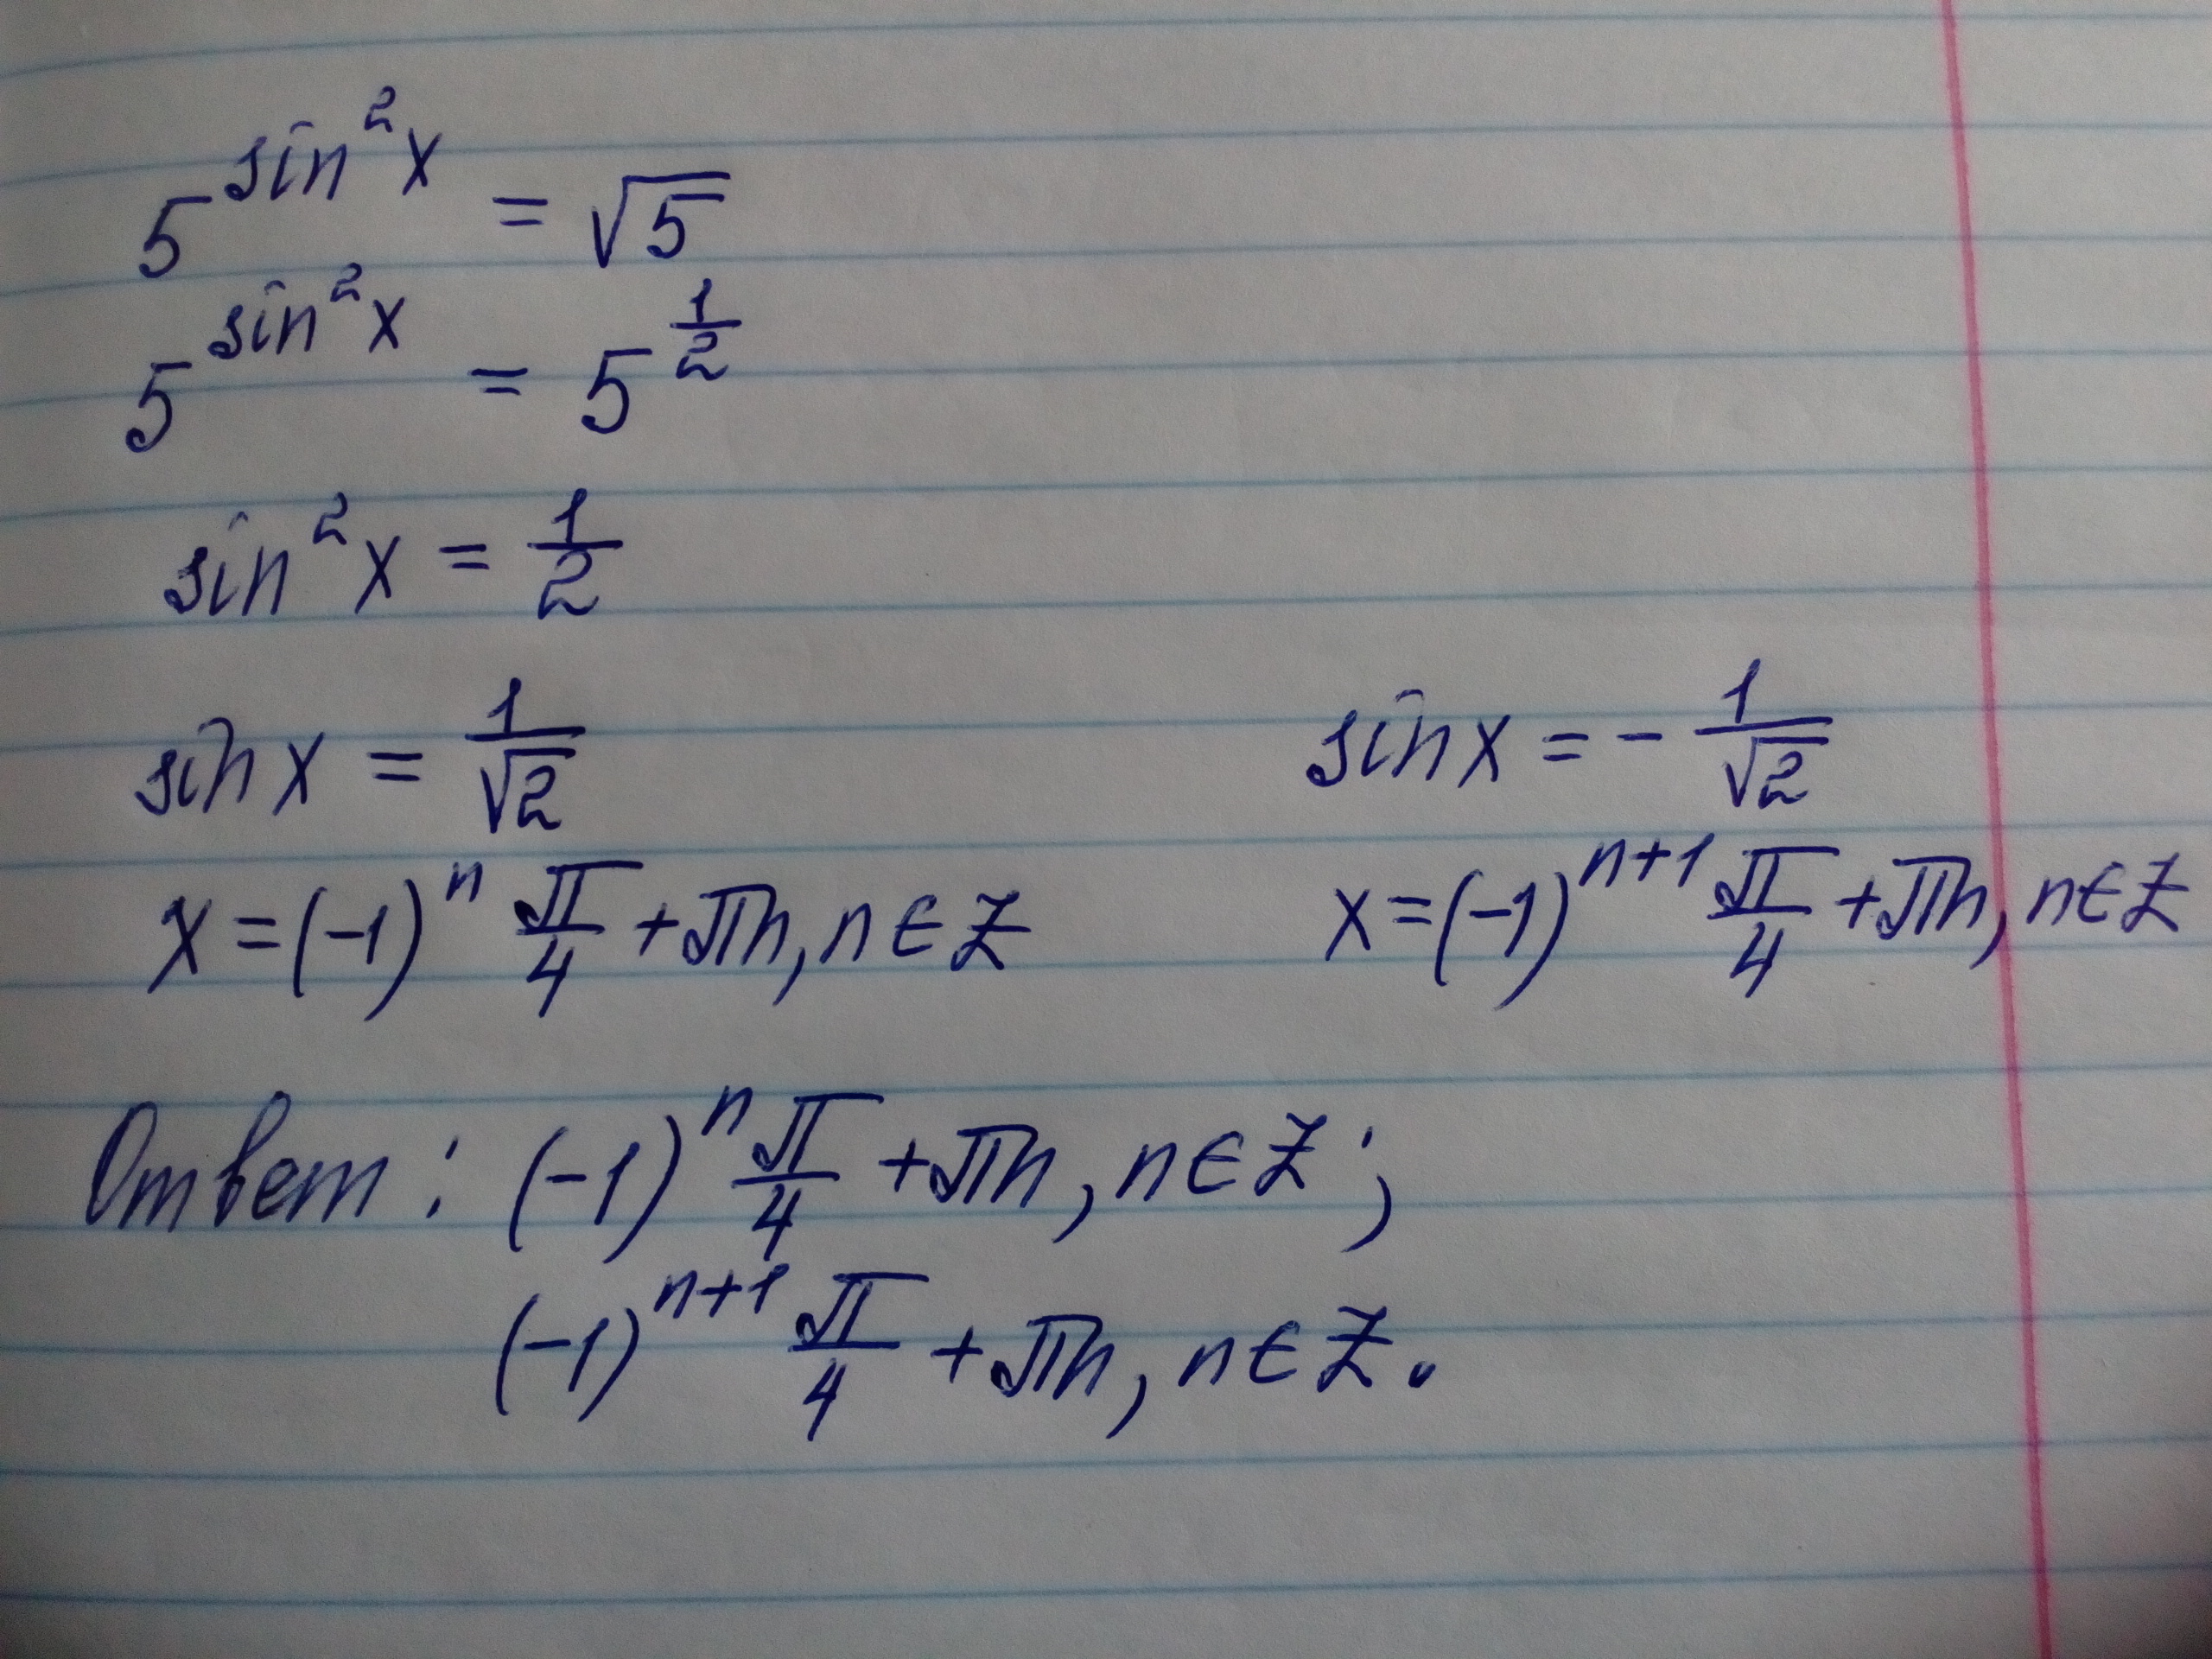 5^{sin²x} = √5
5^{sin²x} = 5^{1/2}
sin²x = 1/2
sin x = 1/√2    sin x = - 1/√2
x = (-1)^n π/4 + πn, n ∈ Z    x = (-1)^{n+1} π/4 + πn, n ∈ Z
Ответ: (-1)^n π/4 + πn, n ∈ Z;
(-1)^{n+1} π/4 + πn, n ∈ Z.